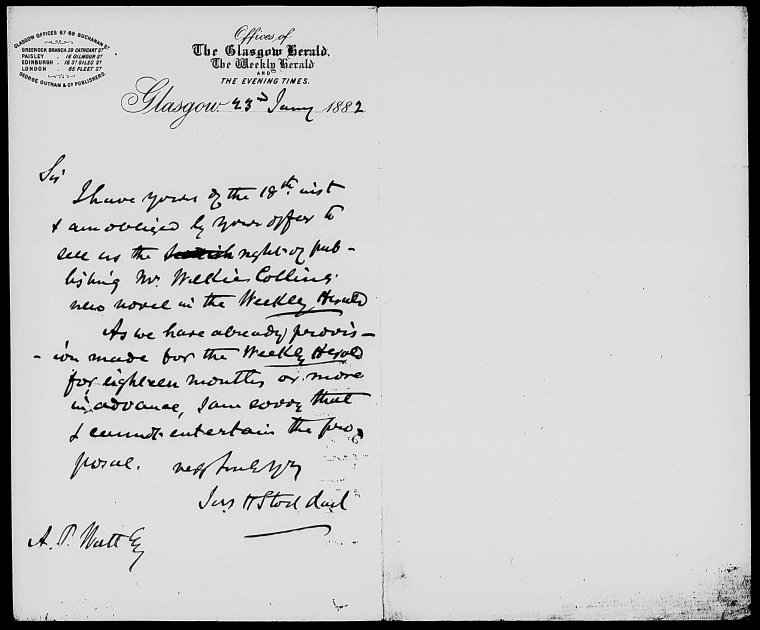 GLASGOW OFFICES 67 69 BUCHANAN ST
GREENOCK BRANCH 29 CATHCART ST
PAISLEY . 16 GILMOUR ST
EDINBURGH . 16 ST GILES ST
LONDON . 65 FLEET ST
GEORGE OUTRAM & CO PUBLISHERS
Offices of
The Glasgow Herald.
The Weekly Herald
AND
THE EVENING TIMES.
Glasgow 23rd Jany 1882
Sir
I have yours of the 18th inst
& am obliged by your offer to
sell us the right of pub-
lishing Mr. Wilkie Collins'
new novel in the Weekly Herald
As we have already provis-
-ion made for the Weekly Herald
for eighteen months or more
in advance, I am sorry that
I cannot entertain the pro-
posal.
Jas H Stoddart
A. P. Watt Esq